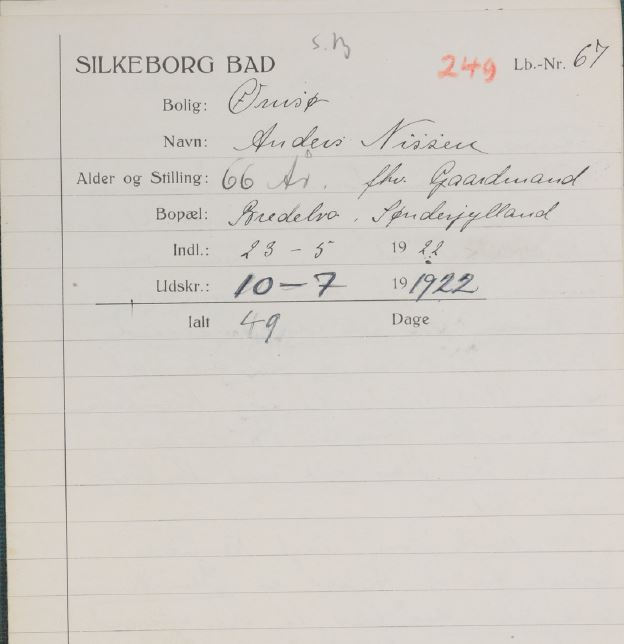 S.B
SILKEBORG BAD 249 Lb.-Nr. 67
Bolig: Ørnsø
Navn: Anders Nissen
Alder og Stilling: 66 År. fhv. Gaardmand
Bopæl: Bredebro. Sønderjylland
Indl.: 23 - 5 19 22
Udskr.: 10 - 7 19 1922
Ialt 49 Dage